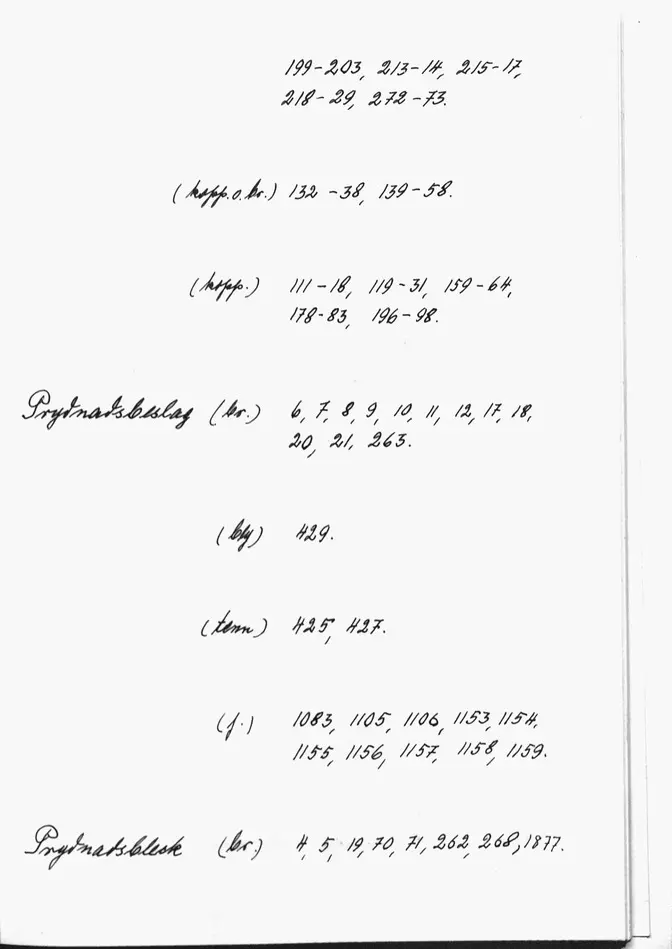 199-203, 213-14, 215-17,
218-29, 272-73.
(kopp.o.br.) 132-38, 139-58.
(kopp.) 111-18, 119-31, 159-64,
178-83, 196-98.
Prydnadsbeslag (br.) 6, 7, 8, 9, 10, 11, 12, 17, 18,
20, 21, 263.
(bly) 429.
(tenn) 425, 427.
(j.) 1083, 1105, 1106, 1153, 1154,
1155, 1156, 1157, 1158, 1159.
Prydnadsbleck (br.) 4, 5, 19, 70, 71, 262, 268, 1877.